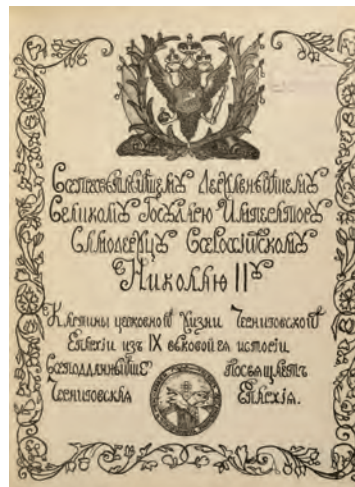 Всепресвѣтлѣйшемȣ Державнѣйшемȣ
Великомȣ Государю Императорȣ
Самодержцȣ Всероссійскомȣ
Николаю IIȣ
Картины церковной жизни Черниговской
Епархіи изъ IX вѣковой ея исторіи
Всеподданнѣйше посвящаетъ
Черниговская Епархія.